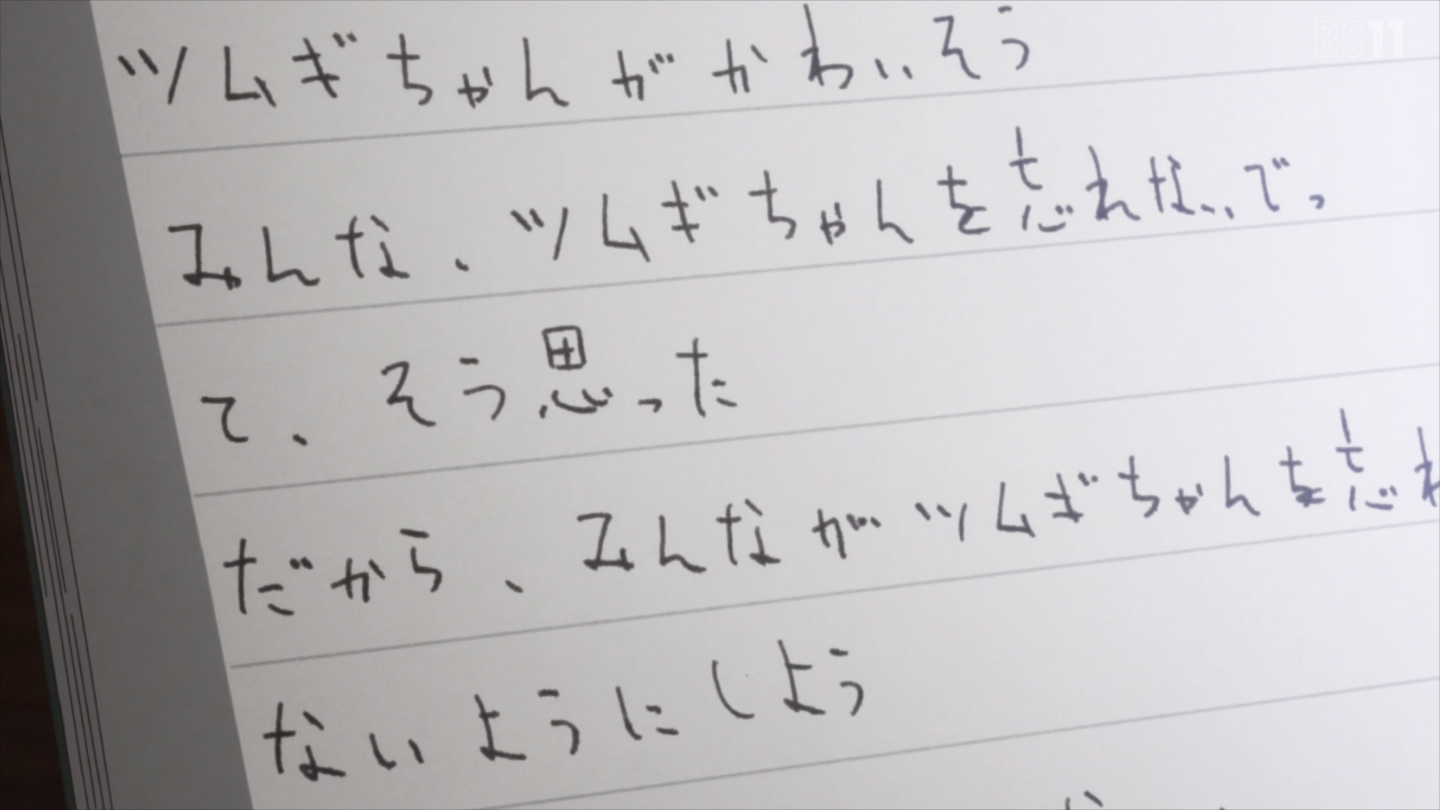 BS11
ツムギちゃんがかわいそう
みんな、ツムギちゃんを忘れないでっ
て、そう思った
だから、みんながツムギちゃんを忘れ
ないようにしよう